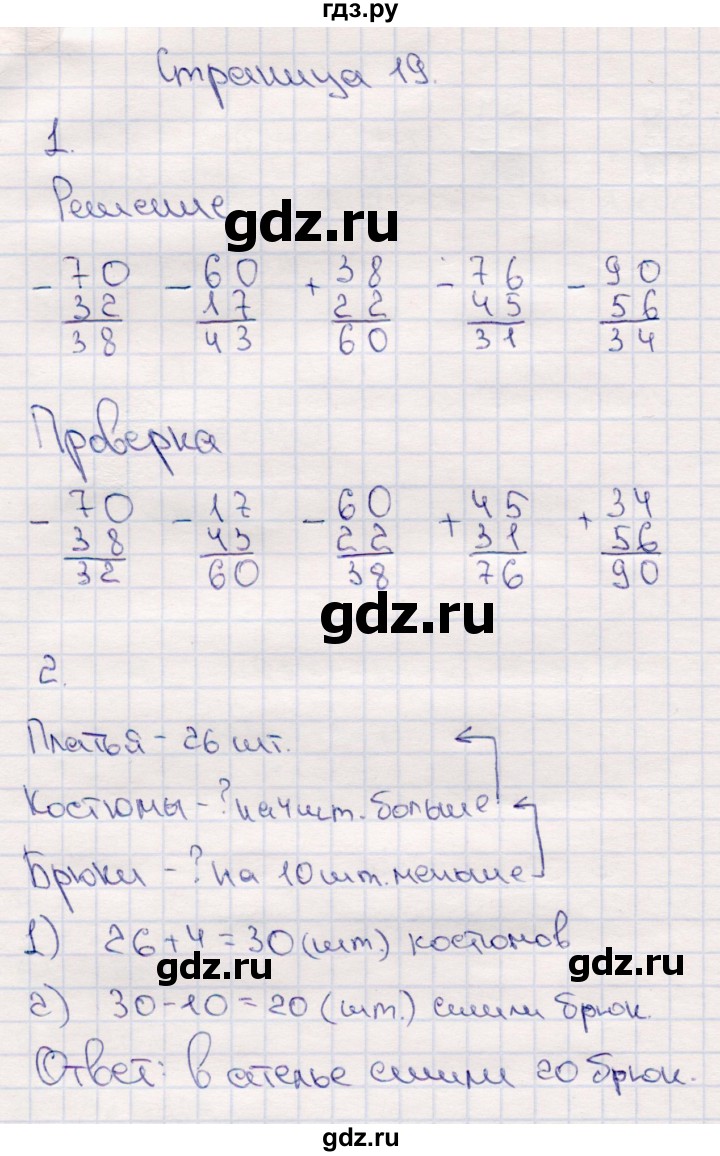 гдз.ру
Страница 19.
1.
Решение
gdz.ru
- 70 - 60 + 38 - 76 - 90
32 17 22 45 56
38 43 60 31 34
Проверка
- 70 - 17 - 60 + 45 + 34
38 43 22 31 56
32 60 38 76 90
gdz.ru
2.
Платья - 26 шт.
Костюмы - ? на 4 шт. больше
Брюки - ? на 10 шт. меньше
1) 26 + 4 = 30 (шт.) костюмов
gdz.ru
gdz.ru
2) 30 - 10 = 20 (шт.) сшили брюк.
Ответ: в ателье сшили 20 брюк.
gdz.ru